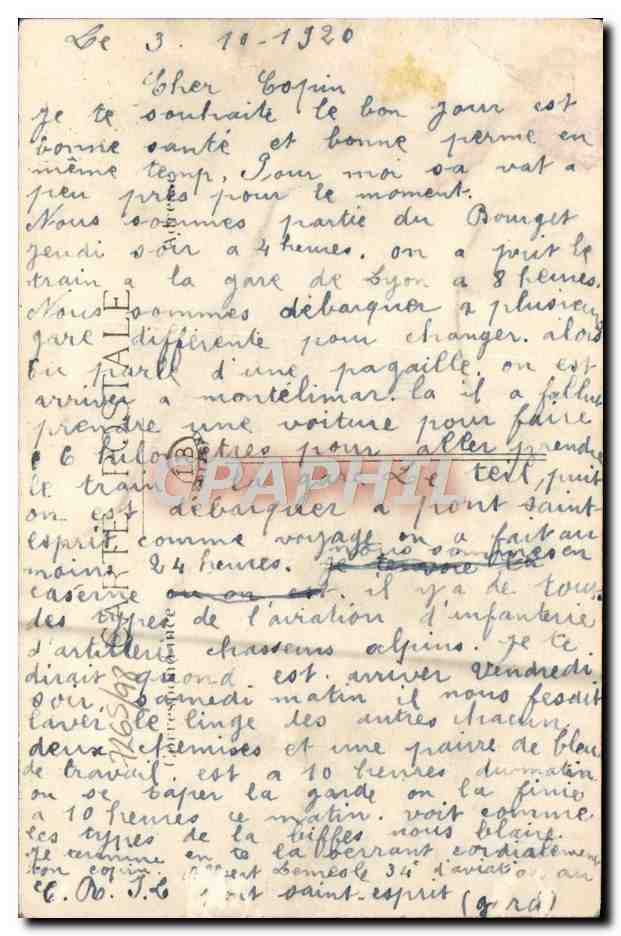 Le 3 10-1920
Cher Copin
Je te souhaite le bon jour est
bonne santé et bonne perme en
même temp. Pour moi sa vat a
peu près pour le moment.
Nous sommes partie du Bourget
jeudi soir a 4 heures. on a prit le
train a la gare de Lyon a 8 heures.
Nous sommes débarquer a plusieur
gare différente pour changer. alors
tu parle d'une pagaille. on est
arriver a montélimar. la il a fallut
prendre une voiture pour faire
6 kilomètres pour aller prendre
le train a la gare Le teil, puit
on est débarquer a pont saint-
esprit comme voyage on a fait au
moins 24 heures. nous sommes en
caserne il y a de tous
des types de l'aviation d'infanterie
d'artillerie chasseurs alpins. Je te
dirait quand est arriver Vendredi
soir. samedi matin il nous fesait
laver le linge des autres chacun
deux chemises et une paire de bleu
de travail. est a 10 heures du matin
on se taper la garde on la finie
a 10 heures ce matin. voit comme
les types de la biffes nous blaire.
Je termine en te la serrant cordialement
ton copin Albert 34e d'aviation au
C. R. I. L pont saint-esprit
(gard)
CARTE POSTALE
Correspondance
Adresse
1265/98
13
CPAPHIL